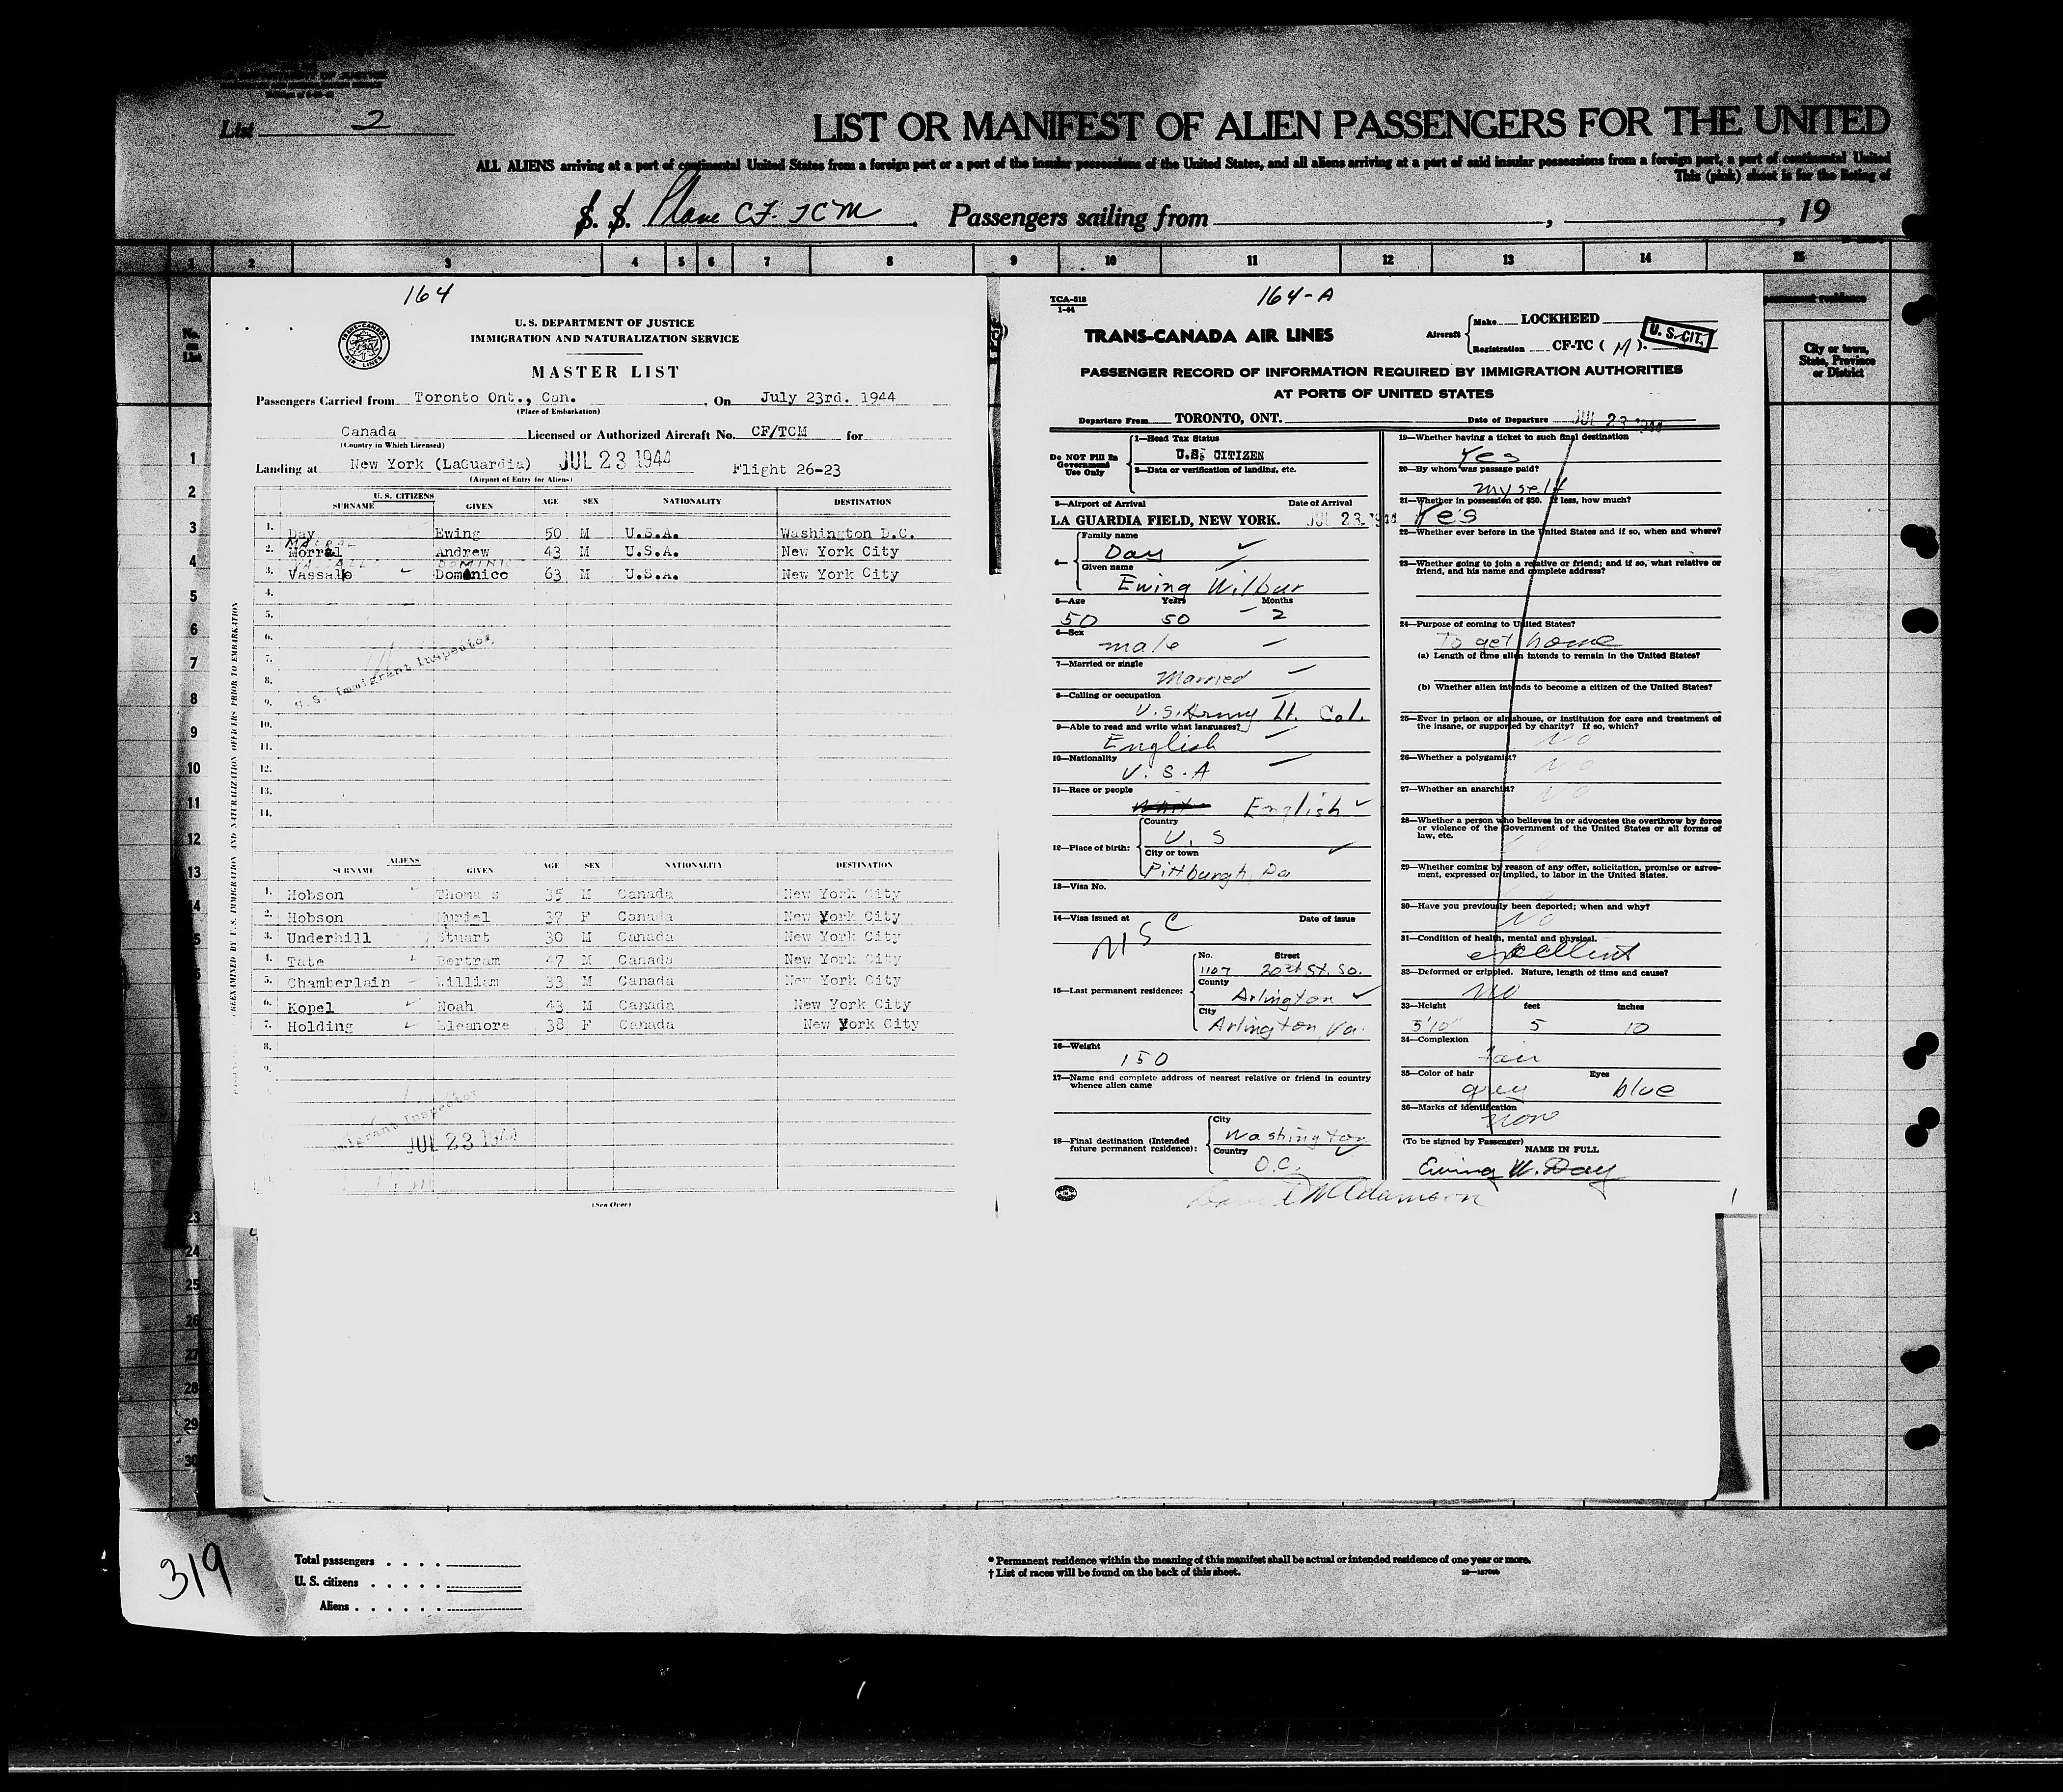 List 2
LIST OR MANIFEST OF ALIEN PASSENGERS FOR THE UNITED
ALL ALIENS arriving at a port of continental United States from a foreign port or a port of the insular possessions of the United States, and all aliens arriving at a port of said insular possessions from a foreign port, a port of continental United
This (pink) sheet is for the listing of
S. S. Plane CF-TCM . Passengers sailing from , , 19
1 2 3 4 5 6 7 8 9 10 11 12 13 14 15
No. on List
permanent residence
City or town, State, Province or District
164
TRANS-CANADA AIR LINES
U. S. DEPARTMENT OF JUSTICE
IMMIGRATION AND NATURALIZATION SERVICE
MASTER LIST
Passengers Carried from Toronto Ont., Can. , On July 23rd. 1944
(Place of Embarkation)
Canada Licensed or Authorized Aircraft No. CF/TCM for
(Country in Which Licensed)
Landing at New York (LaGuardia) JUL 23 1944 Flight 26-23
(Airport of Entry for Aliens)
U. S. CITIZENS
SURNAME GIVEN AGE SEX NATIONALITY DESTINATION
1. Day Ewing 50 M U.S.A. Washington D.C.
2. Morral Andrew 43 M U.S.A. New York City
3. Vassalo Domenico 63 M U.S.A. New York City
4.
5.
6.
7.
8.
9.
10.
11.
12.
13.
14.
U. S. Immigrant Inspector
ALIENS
SURNAME GIVEN AGE SEX NATIONALITY DESTINATION
1. Hobson Thomas 35 M Canada New York City
2. Hobson Muriel 37 F Canada New York City
3. Underhill Stuart 30 M Canada New York City
4. Tate Bertram 47 M Canada New York City
5. Chamberlain William 33 M Canada New York City
6. Kopel Noah 43 M Canada New York City
7. Holding Eleanore 38 F Canada New York City
8.
9.
Immigrant Inspector
JUL 23 1944
(See Over)
EXAMINED BY U.S. IMMIGRATION AND NATURALIZATION OFFICERS PRIOR TO EMBARKATION
TCA-518
1-44
164-A
TRANS-CANADA AIR LINES
Aircraft Make LOCKHEED
Registration CF-TC ( M ).
U. S. CIT.
PASSENGER RECORD OF INFORMATION REQUIRED BY IMMIGRATION AUTHORITIES
AT PORTS OF UNITED STATES
Departure From TORONTO, ONT. Date of Departure JUL 23 1944
Do NOT Fill In Government Use Only
1—Head Tax Status
U.S. CITIZEN
2—Data or verification of landing, etc.
3—Airport of Arrival Date of Arrival
LA GUARDIA FIELD, NEW YORK. JUL 23 1944
4— Family name
Day
Given name
Ewing Wilbur
5—Age Years Months
50 50 2
6—Sex
male
7—Married or single
Married
8—Calling or occupation
U.S. Army Lt. Col.
9—Able to read and write what languages?
English
10—Nationality
U. S. A
11—Race or people
English
12—Place of birth: Country
U. S
City or town
Pittburgh, Pa
13—Visa No.
14—Visa issued at Date of issue
15—Last permanent residence: No. Street
1107 20th St. So.
County
Arlington
City
Arlington Va.
16—Weight
150
17—Name and complete address of nearest relative or friend in country whence alien came
18—Final destination (Intended future permanent residence): City
Washington
Country
D.C.
19—Whether having a ticket to such final destination
Yes
20—By whom was passage paid?
myself
21—Whether in possession of $50. If less, how much?
Yes
22—Whether ever before in the United States and if so, when and where?
23—Whether going to join a relative or friend; and if so, what relative or friend, and his name and complete address?
24—Purpose of coming to United States?
To get home
(a) Length of time alien intends to remain in the United States?
(b) Whether alien intends to become a citizen of the United States?
25—Ever in prison or almshouse, or institution for care and treatment of the insane, or supported by charity? If so, which?
No
26—Whether a polygamist?
No
27—Whether an anarchist?
No
28—Whether a person who believes in or advocates the overthrow by force or violence of the Government of the United States or all forms of law, etc.
29—Whether coming by reason of any offer, solicitation, promise or agreement, expressed or implied, to labor in the United States.
30—Have you previously been deported; when and why?
No
31—Condition of health, mental and physical.
excellent
32—Deformed or crippled. Nature, length of time and cause?
No
33—Height feet inches
5'10" 5 10
34—Complexion
fair
35—Color of hair Eyes
grey blue
36—Marks of identification
non
(To be signed by Passenger)
NAME IN FULL
Ewing W. Day
319
Total passengers
U. S. citizens
Aliens
* Permanent residence within the meaning of this manifest shall be actual or intended residence of one year or more.
† List of races will be found on the back of this sheet.